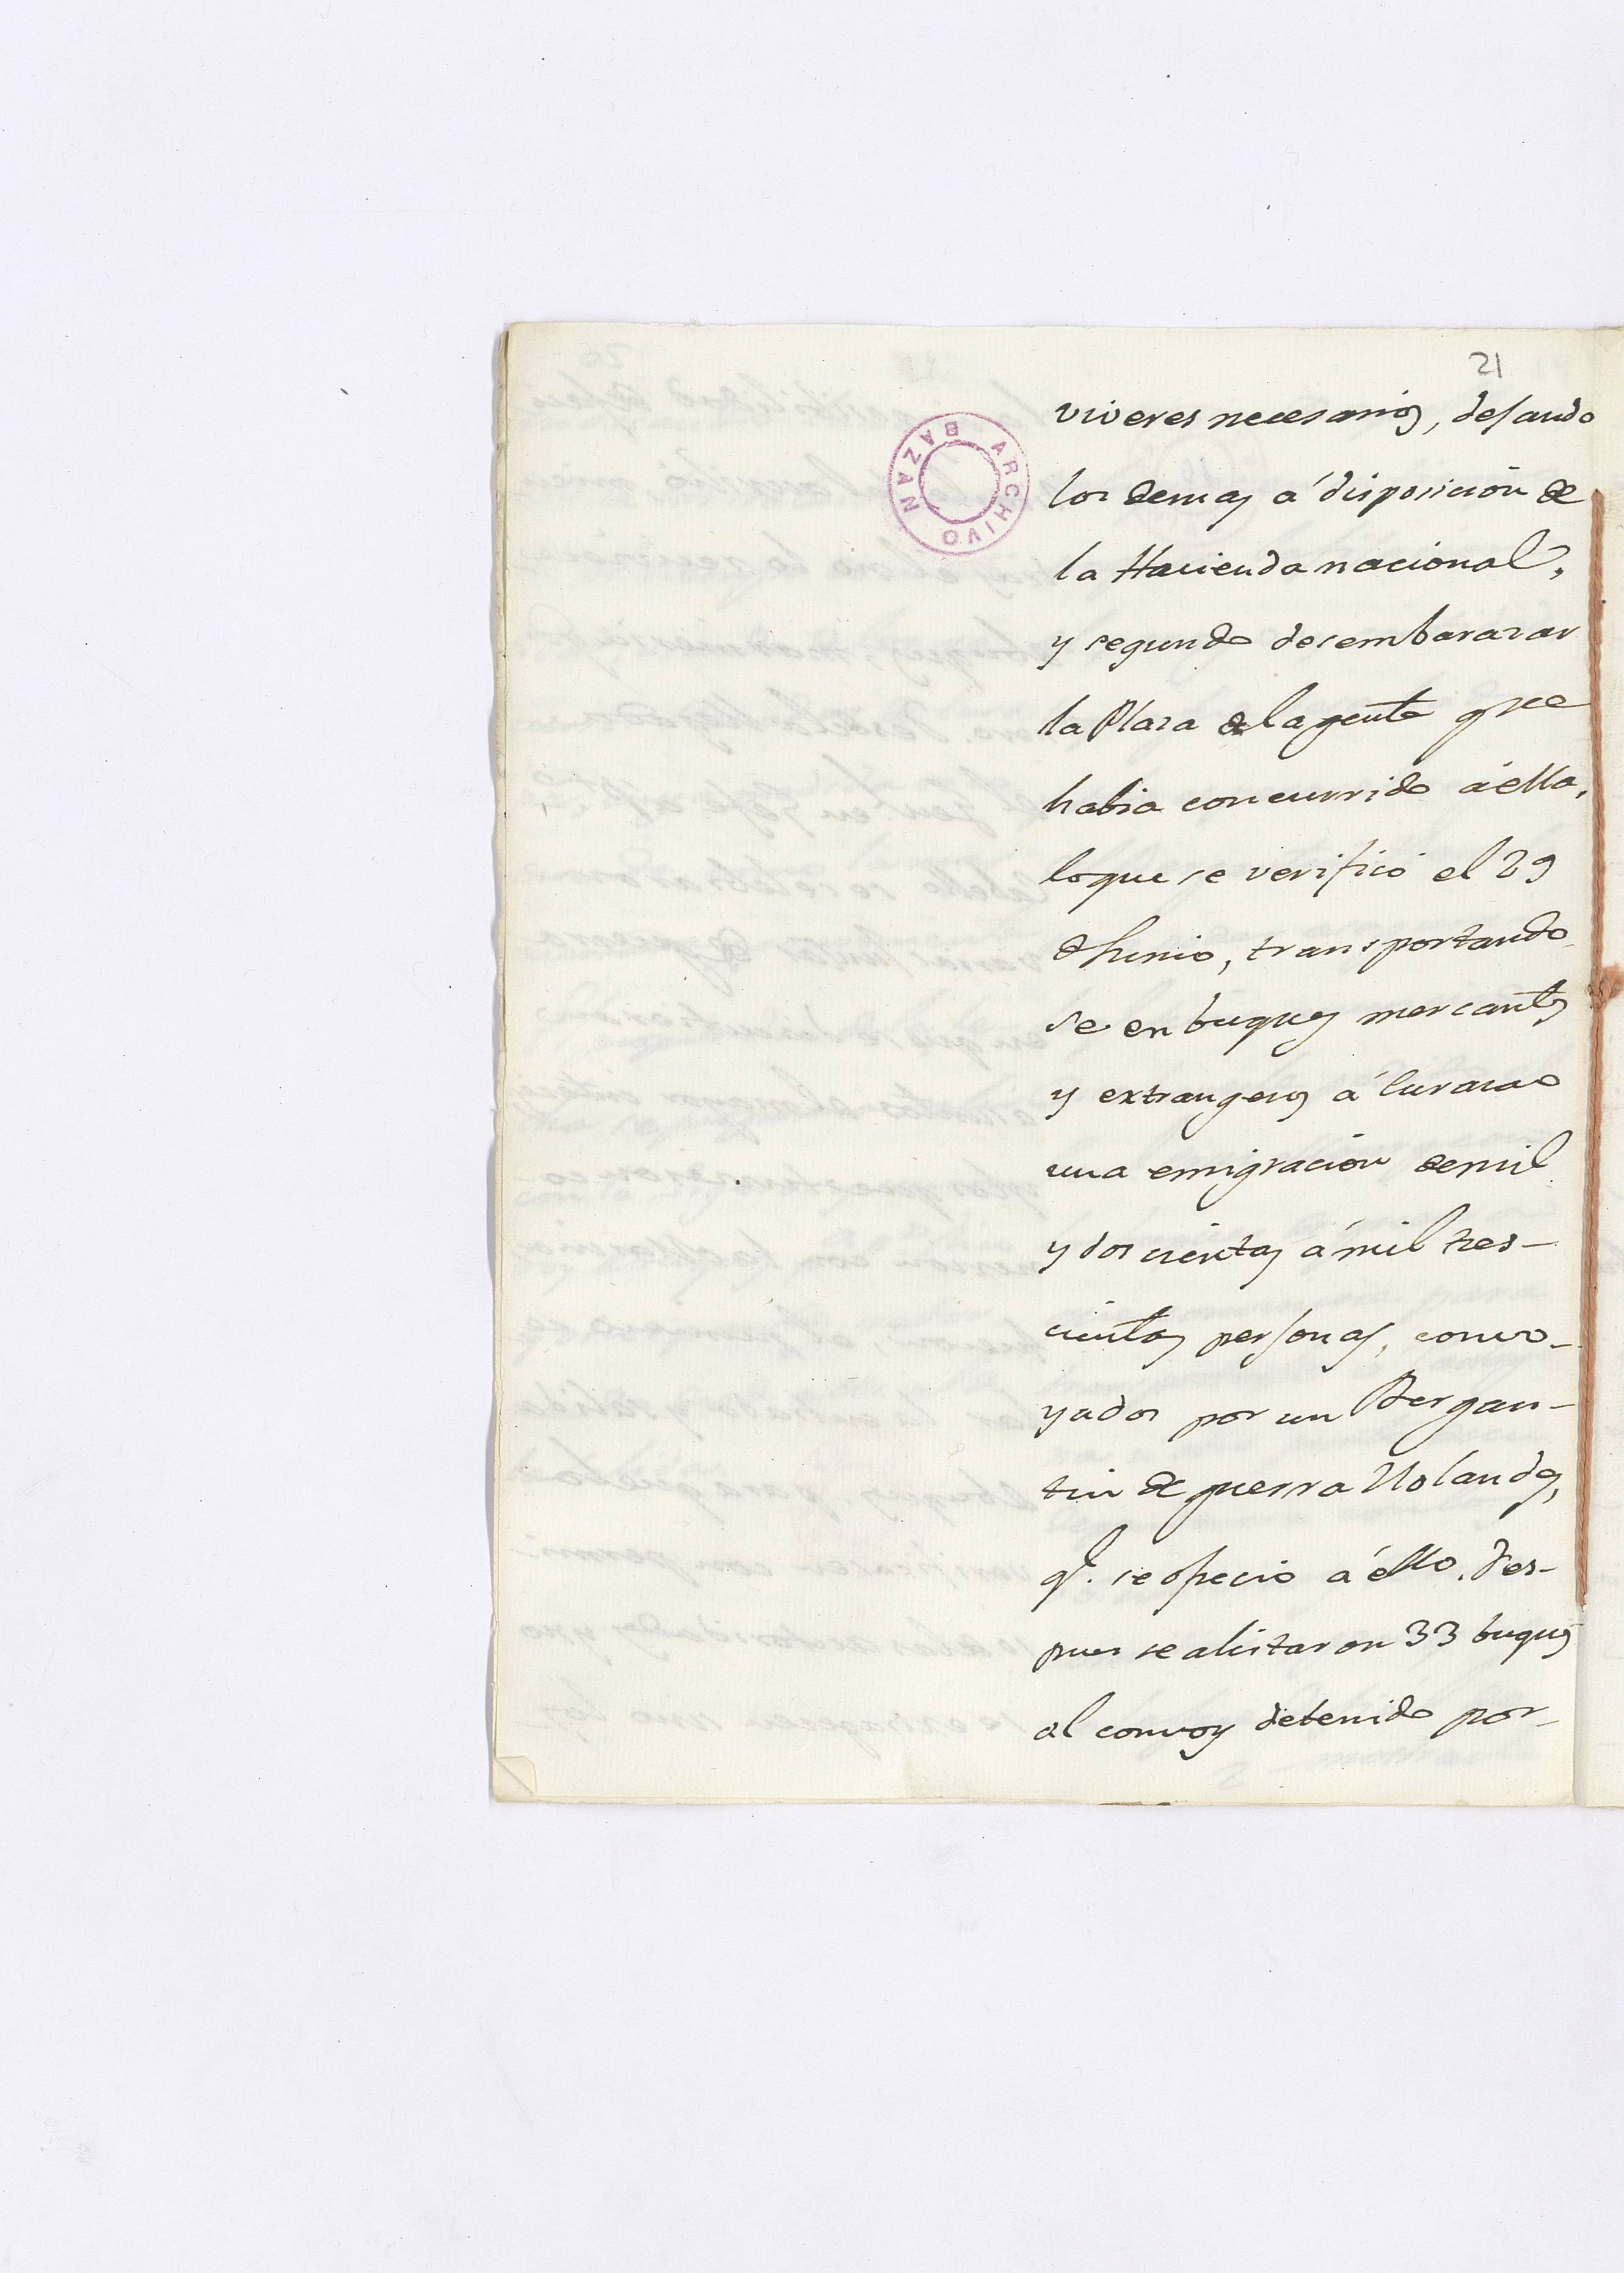 21
ARCHIVO BAZAN
viveres necesarios, dejando
los demas á disposicion de
la Hacienda nacional,
y segundo desembarazar
la Plaza de la gente que
habia concurrido á ella,
lo que se verificó el 29
de Junio, transportando
se en buques mercantes
y extrangeros á Curazao
una emigracion de mil
y dos cientas á mil tres-
cientas personas, convo-
yados por un Bergan-
tin de guerra Holandes,
qe. se ofrecio á ello. Des-
pues se alistaron 33 buques
al convoy detenido por-